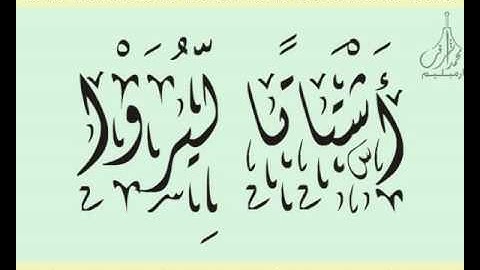 أَشْتَاتًا لِّيُرَوْا